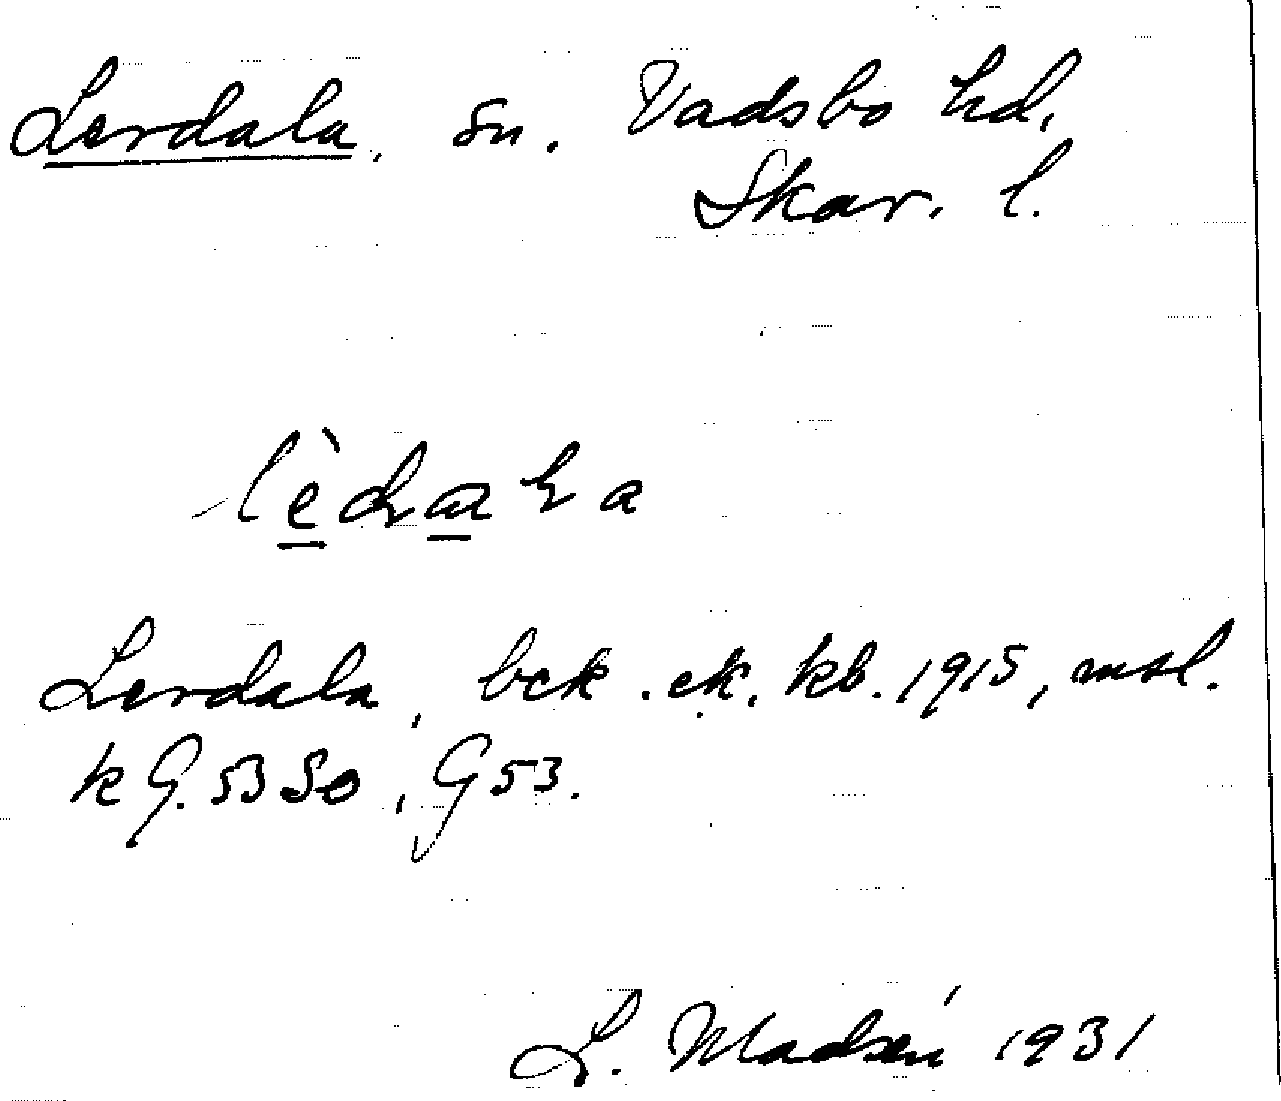 Lerdala, sn. Vadsbo hd,
Skar. l.
Lerdala, bck. ek. kb. 1915, msl.
k G. 53 So, G 53.
L. Madsén 1931